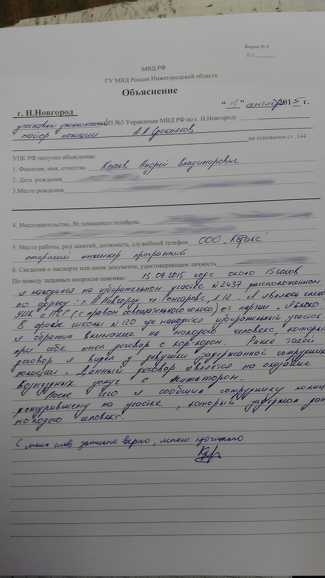 Форма № 6
МВД РФ
ГУ МВД России Нижегородской области
Объяснение
г. Н.Новгород "13" сентября 2015 г.
участковый уполномоченный ОП №3 Управления МВД РФ по г. Н.Новгороду
майор полиции А.В. на основании ст. 144
УПК РФ получил объяснение:
1. Фамилия, имя, отчество Андрей Владимирович
2. Дата рождения
3. Место рождения
4. Местожительство, № домашнего телефона
5. Место работы, род занятий, должность, служебный телефон ООО
старший инженер программист
6. Сведения о паспорте или ином документе, удостоверяющем личность
По поводу заданных вопросов поясняю: 13.09.2015 года около 15 часов
я находился на избирательном участке № расположенном
по адресу: г. Н.Новгород, ул. д.12. Я являюсь членом
УИК с ПСГ (с правом совещательного голоса) от партии Яблоко
В фойе школы №120 где находится избирательный участок
я обратил внимание на молодого человека, который
при себе имел договор с Ранее такой
договор я видел у девушки задержанной сотрудниками
полиции. Данный договор является на оказание
возмездных услуг с агитатором.
После чего я сообщил сотруднику полиции
дежурившему на участке, который задержал данного
молодого человека.
С моих слов записано верно, мною прочитано